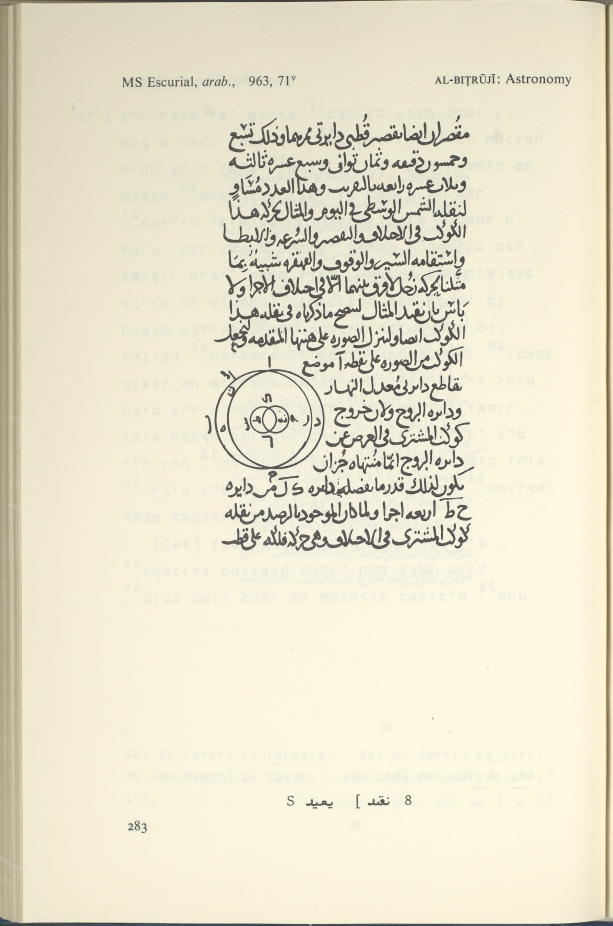 MS Escurial, arab., 963, 71ᵛ
AL-BIṬRŪJĪ: Astronomy
مقصران ايضا بقصر قطبي دايرتي ممرهما وذلك تسع
وخمسون دقيقه وثمان ثواني وسبع عشره ثالثه
وثلاث عشره رابعه بالتقريب وهذا العدد مساو
لنقله الشمس الوسطى في اليوم والمثال لحركه هذا
الكوكب في الاختلاف والتقصير والسرعه والابطا
واستقامه السير والوقوف والقهقره شبيه بما
مثلنا لحركه زحل لا فرق بينهما الا في اختلاف الاجزا ولا
باس بان نقيد المثال ليصح ما ذكرناه في نقله هذا
الكوكب ايضا ولننزل الصوره على هيئتها المقدمه ولنجعل
الكوكب من الصوره على نقطه آ موضع
تقاطع دايرتي معدل النهار
ودايره البروج ولان خروج
كوكب المشتري في العرض عن
دايره البروج انما منتهاه جزان
يكون لذلك قدر ما تفصله دايره من دايره
ح ط اربعه اجزا ولما كان الموجود بالرصد من نقله
كوكب المشتري في الاختلاف وهي حركه فلكه على قطب
8 نقند ] يعيد S
283